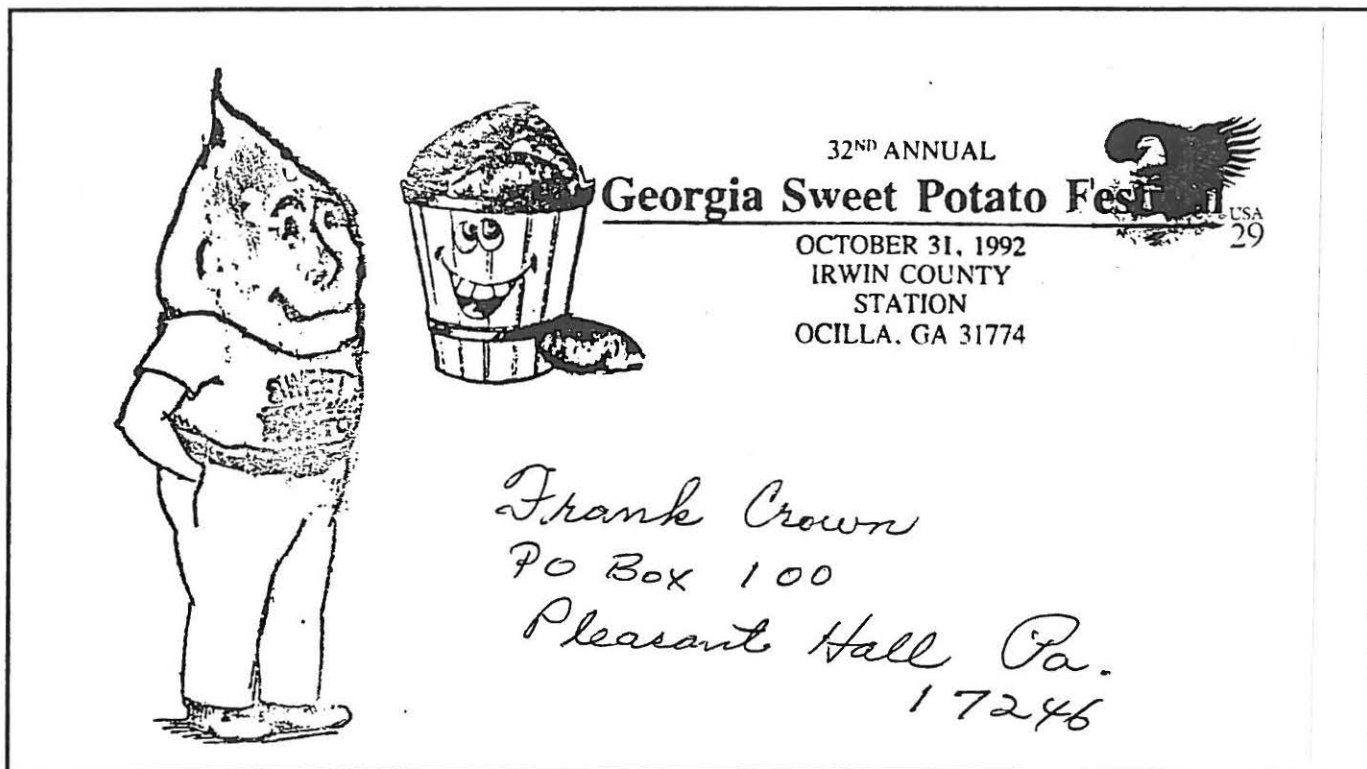 32ND ANNUAL
Georgia Sweet Potato Festival
USA
29
OCTOBER 31, 1992
IRWIN COUNTY
STATION
OCILLA, GA 31774
Frank Crown
PO Box 100
Pleasant Hall Pa.
17246